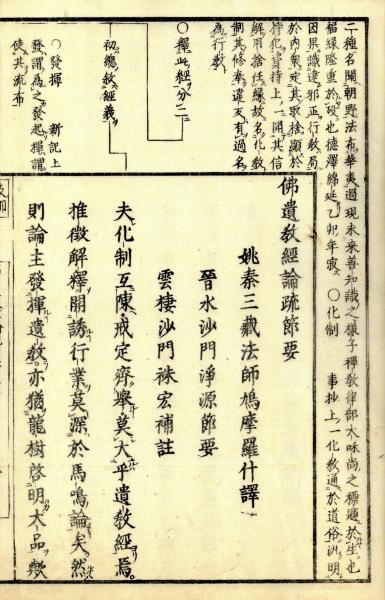 二種名聞朝野法布華夷過現未来善知識之様子禪教律部大咊尚之標題於生也
福緣隆重於歿也德澤綿延乙卯年寂 ○化制 事抄上一化教通於道俗汎明
因果識達邪正行教局
於内衆定其取捨顯於
持犯資持上一開其信
解用捨任緣故名化教
制其修奉違又有過名
為行教
○釋此經分二
初總敘經義
○發揮 新記上
發謂為之發起揮謂
使其流布
佛遺教經論疏節要
姚秦三藏法師鳩摩羅什譯
晉水沙門淨源節要
雲棲沙門袾宏補註
夫化制互陳戒定齊舉莫大乎遺教經焉
推徵解釋開誘行業莫深於馬鳴論矣然
則論主發揮遺教亦猶龍樹啓明大品歟